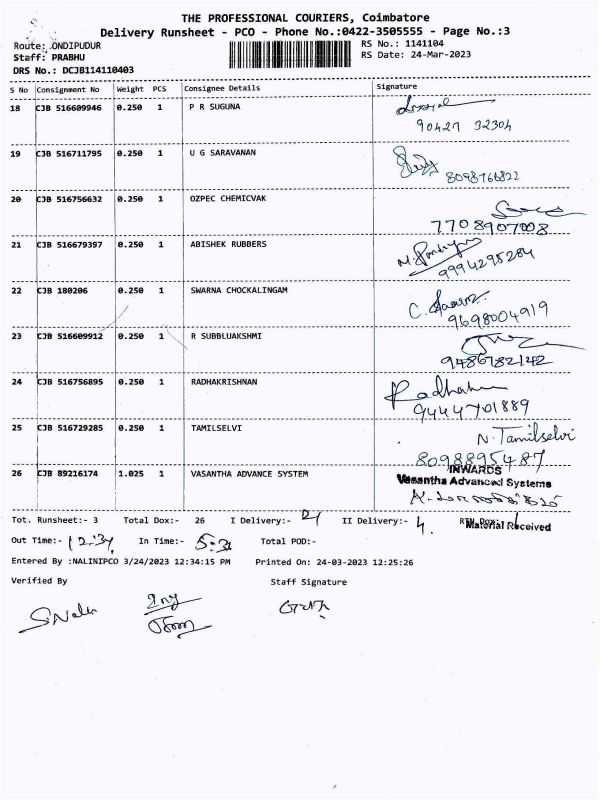 THE PROFESSIONAL COURIERS, Coimbatore
Delivery Runsheet - PCO - Phone No.:0422-3505555 - Page No.:3
Route: ONDIPUDUR RS No.: 1141104
Staff: PRABHU RS Date: 24-Mar-2023
DRS No.: DCJB114110403
S No Consignment No Weight PCS Consignee Details Signature
18 CJB 516609946 0.250 1 P R SUGUNA
90427 32304
19 CJB 516711795 0.250 1 U G SARAVANAN
8098766822
20 CJB 516756632 0.250 1 OZPEC CHEMICVAK
7708907008
21 CJB 516679397 0.250 1 ABISHEK RUBBERS
9994295284
22 CJB 180206 0.250 1 SWARNA CHOCKALINGAM
9698004919
23 CJB 516609912 0.250 1 R SUBBLUAKSHMI
9486782142
24 CJB 516756895 0.250 1 RADHAKRISHNAN
9444701889
25 CJB 516729285 0.250 1 TAMILSELVI N. Tamilselvi
8098895487
26 CJB 89216174 1.025 1 VASANTHA ADVANCE SYSTEM INWARDS
Vasantha Advanced Systems
Tot. Runsheet:- 3 Total Dox:- 26 I Delivery:- 21 II Delivery:- 4 Material Received
Out Time:- 12:34 In Time:- 5:31 Total POD:-
Entered By :NALINIPCO 3/24/2023 12:34:15 PM Printed On: 24-03-2023 12:25:26
Verified By Staff Signature
S.Nalin